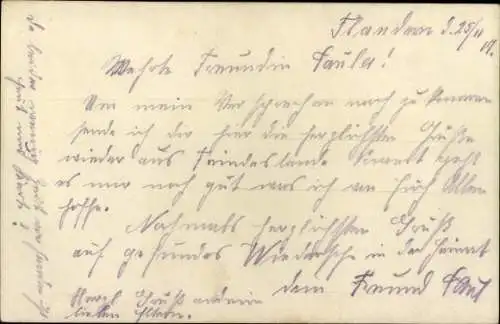 Flandern d. 25/11 17.
Werte Freundin Paula!
Um mein Versprechen nach zu kommen
sende ich dir hier die herzlichsten Grüße
wieder aus Feindesland. Soweit geht
es mir noch gut was ich von Euch Allen
hoffe.
Nochmals herzlichsten Gruß
auf gesundes Wiedersehn in der Heimat
dein Freund Paul
Gruß an deine
lieben Eltern.